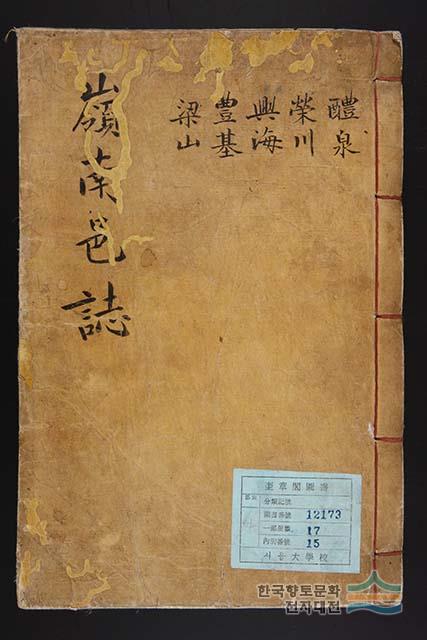 嶺南邑誌
醴泉
榮川
興海
豊基
梁山
奎章閣圖書
分類記號
圖書番號 12173
一部冊數 17
內別番號 15
서울大學校
한국향토문화
전자대전